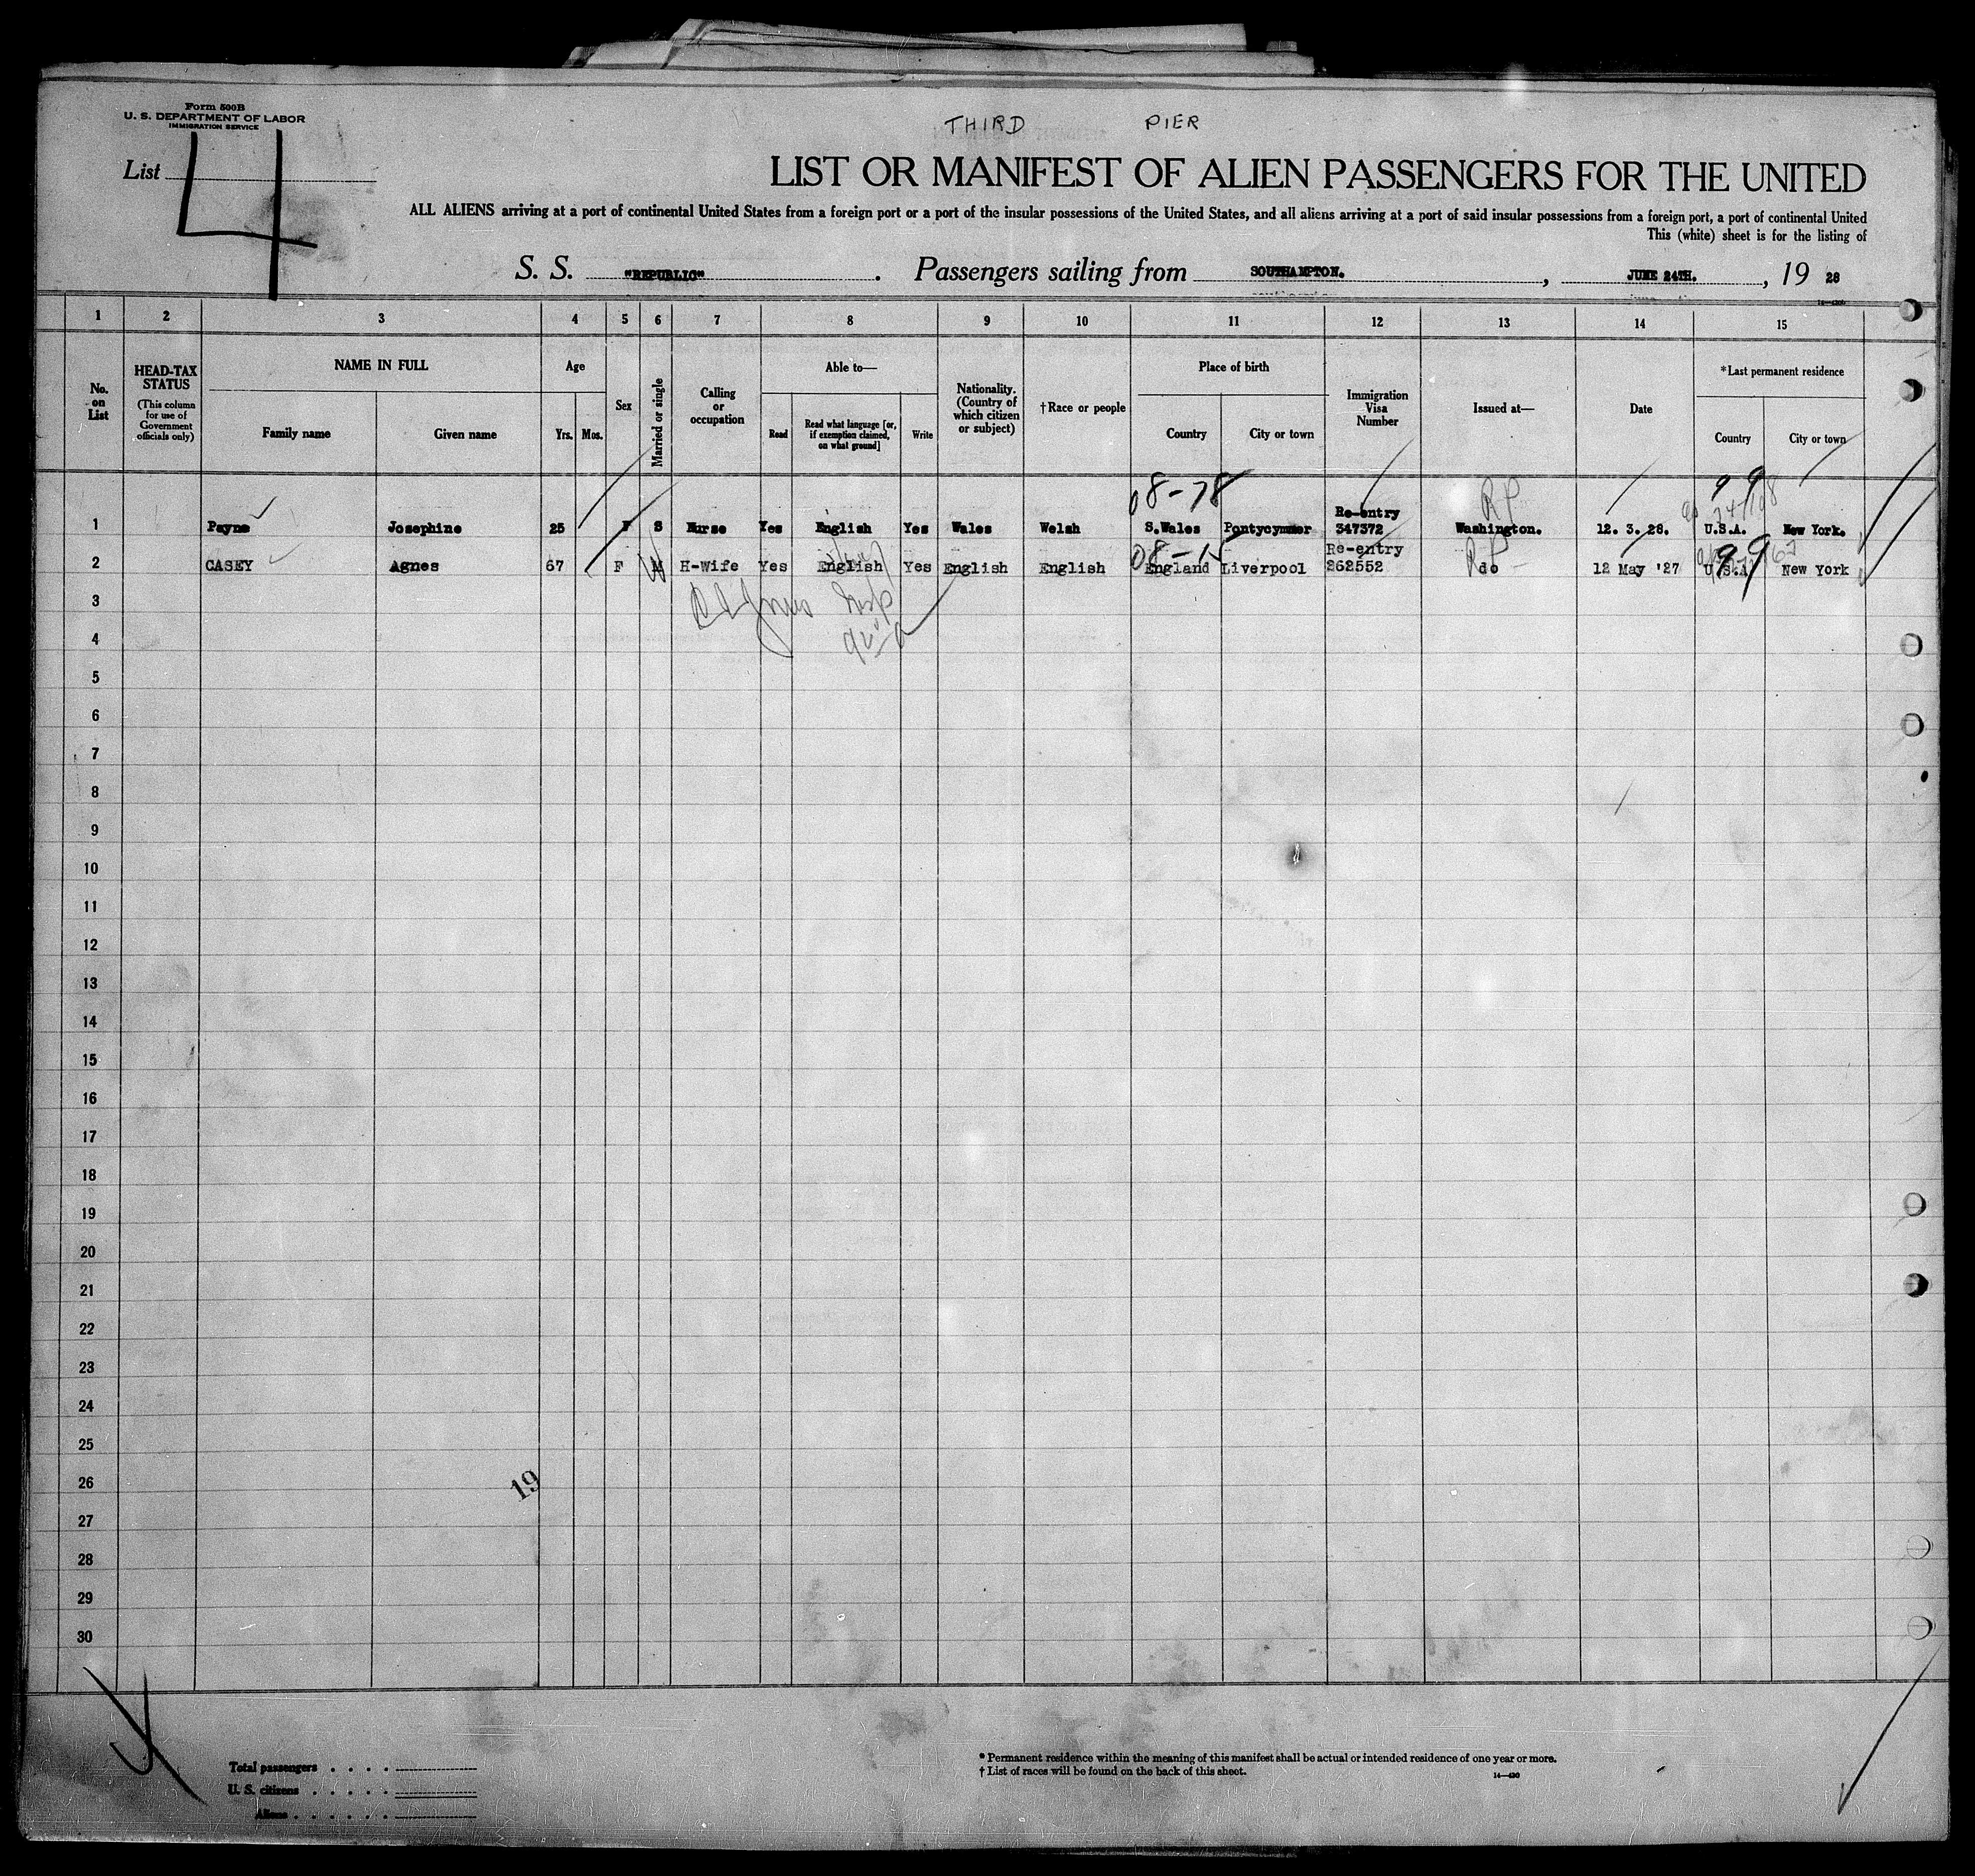 Form 500B
U. S. DEPARTMENT OF LABOR
IMMIGRATION SERVICE
THIRD PIER
List 4
LIST OR MANIFEST OF ALIEN PASSENGERS FOR THE UNITED
ALL ALIENS arriving at a port of continental United States from a foreign port or a port of the insular possessions of the United States, and all aliens arriving at a port of said insular possessions from a foreign port, a port of continental United
This (white) sheet is for the listing of
S. S. "REPUBLIC". Passengers sailing from SOUTHAMPTON. , JUNE 24TH. , 19 28
1 2 3 4 5 6 7 8 9 10 11 12 13 14 15
No. on List
HEAD-TAX STATUS
(This column for use of Government officials only)
NAME IN FULL
Family name Given name
Age
Yrs. Mos.
Sex
Married or single
Calling or occupation
Able to—
Read
Read what language [or, if exemption claimed, on what ground]
Write
Nationality. (Country of which citizen or subject)
†Race or people
Place of birth
Country City or town
Immigration Visa Number
Issued at—
Date
*Last permanent residence
Country City or town
08-78
99
RP
1 Payne Josephine 25 F S Nurse Yes English Yes Wales Welsh S.Wales Pontycymmer Re-entry 347372 Washington. 12. 3. 28. U.S.A. New York.
08-15
RP
99
2 CASEY Agnes 67 F M H-Wife Yes English Yes English English England Liverpool Re-entry 262552 do 12 May '27 U.S.A New York
W
3
4
5
6
7
8
9
10
11
12
13
14
15
16
17
18
19
20
21
22
23
24
25
26
19
27
28
29
30
Total passengers . . . .
U. S. citizens . . . . .
Aliens . . . . . .
* Permanent residence within the meaning of this manifest shall be actual or intended residence of one year or more.
† List of races will be found on the back of this sheet.
14—430